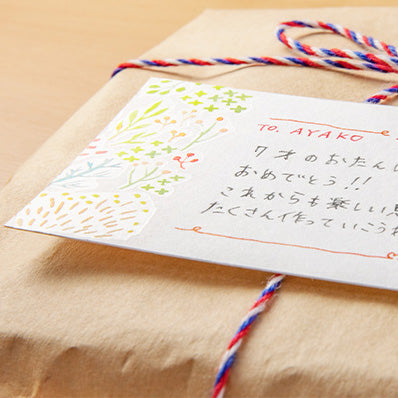 TO. AYAKO
7才のおたん
おめでとう!!
これからも楽しい
たくさん作っていこう